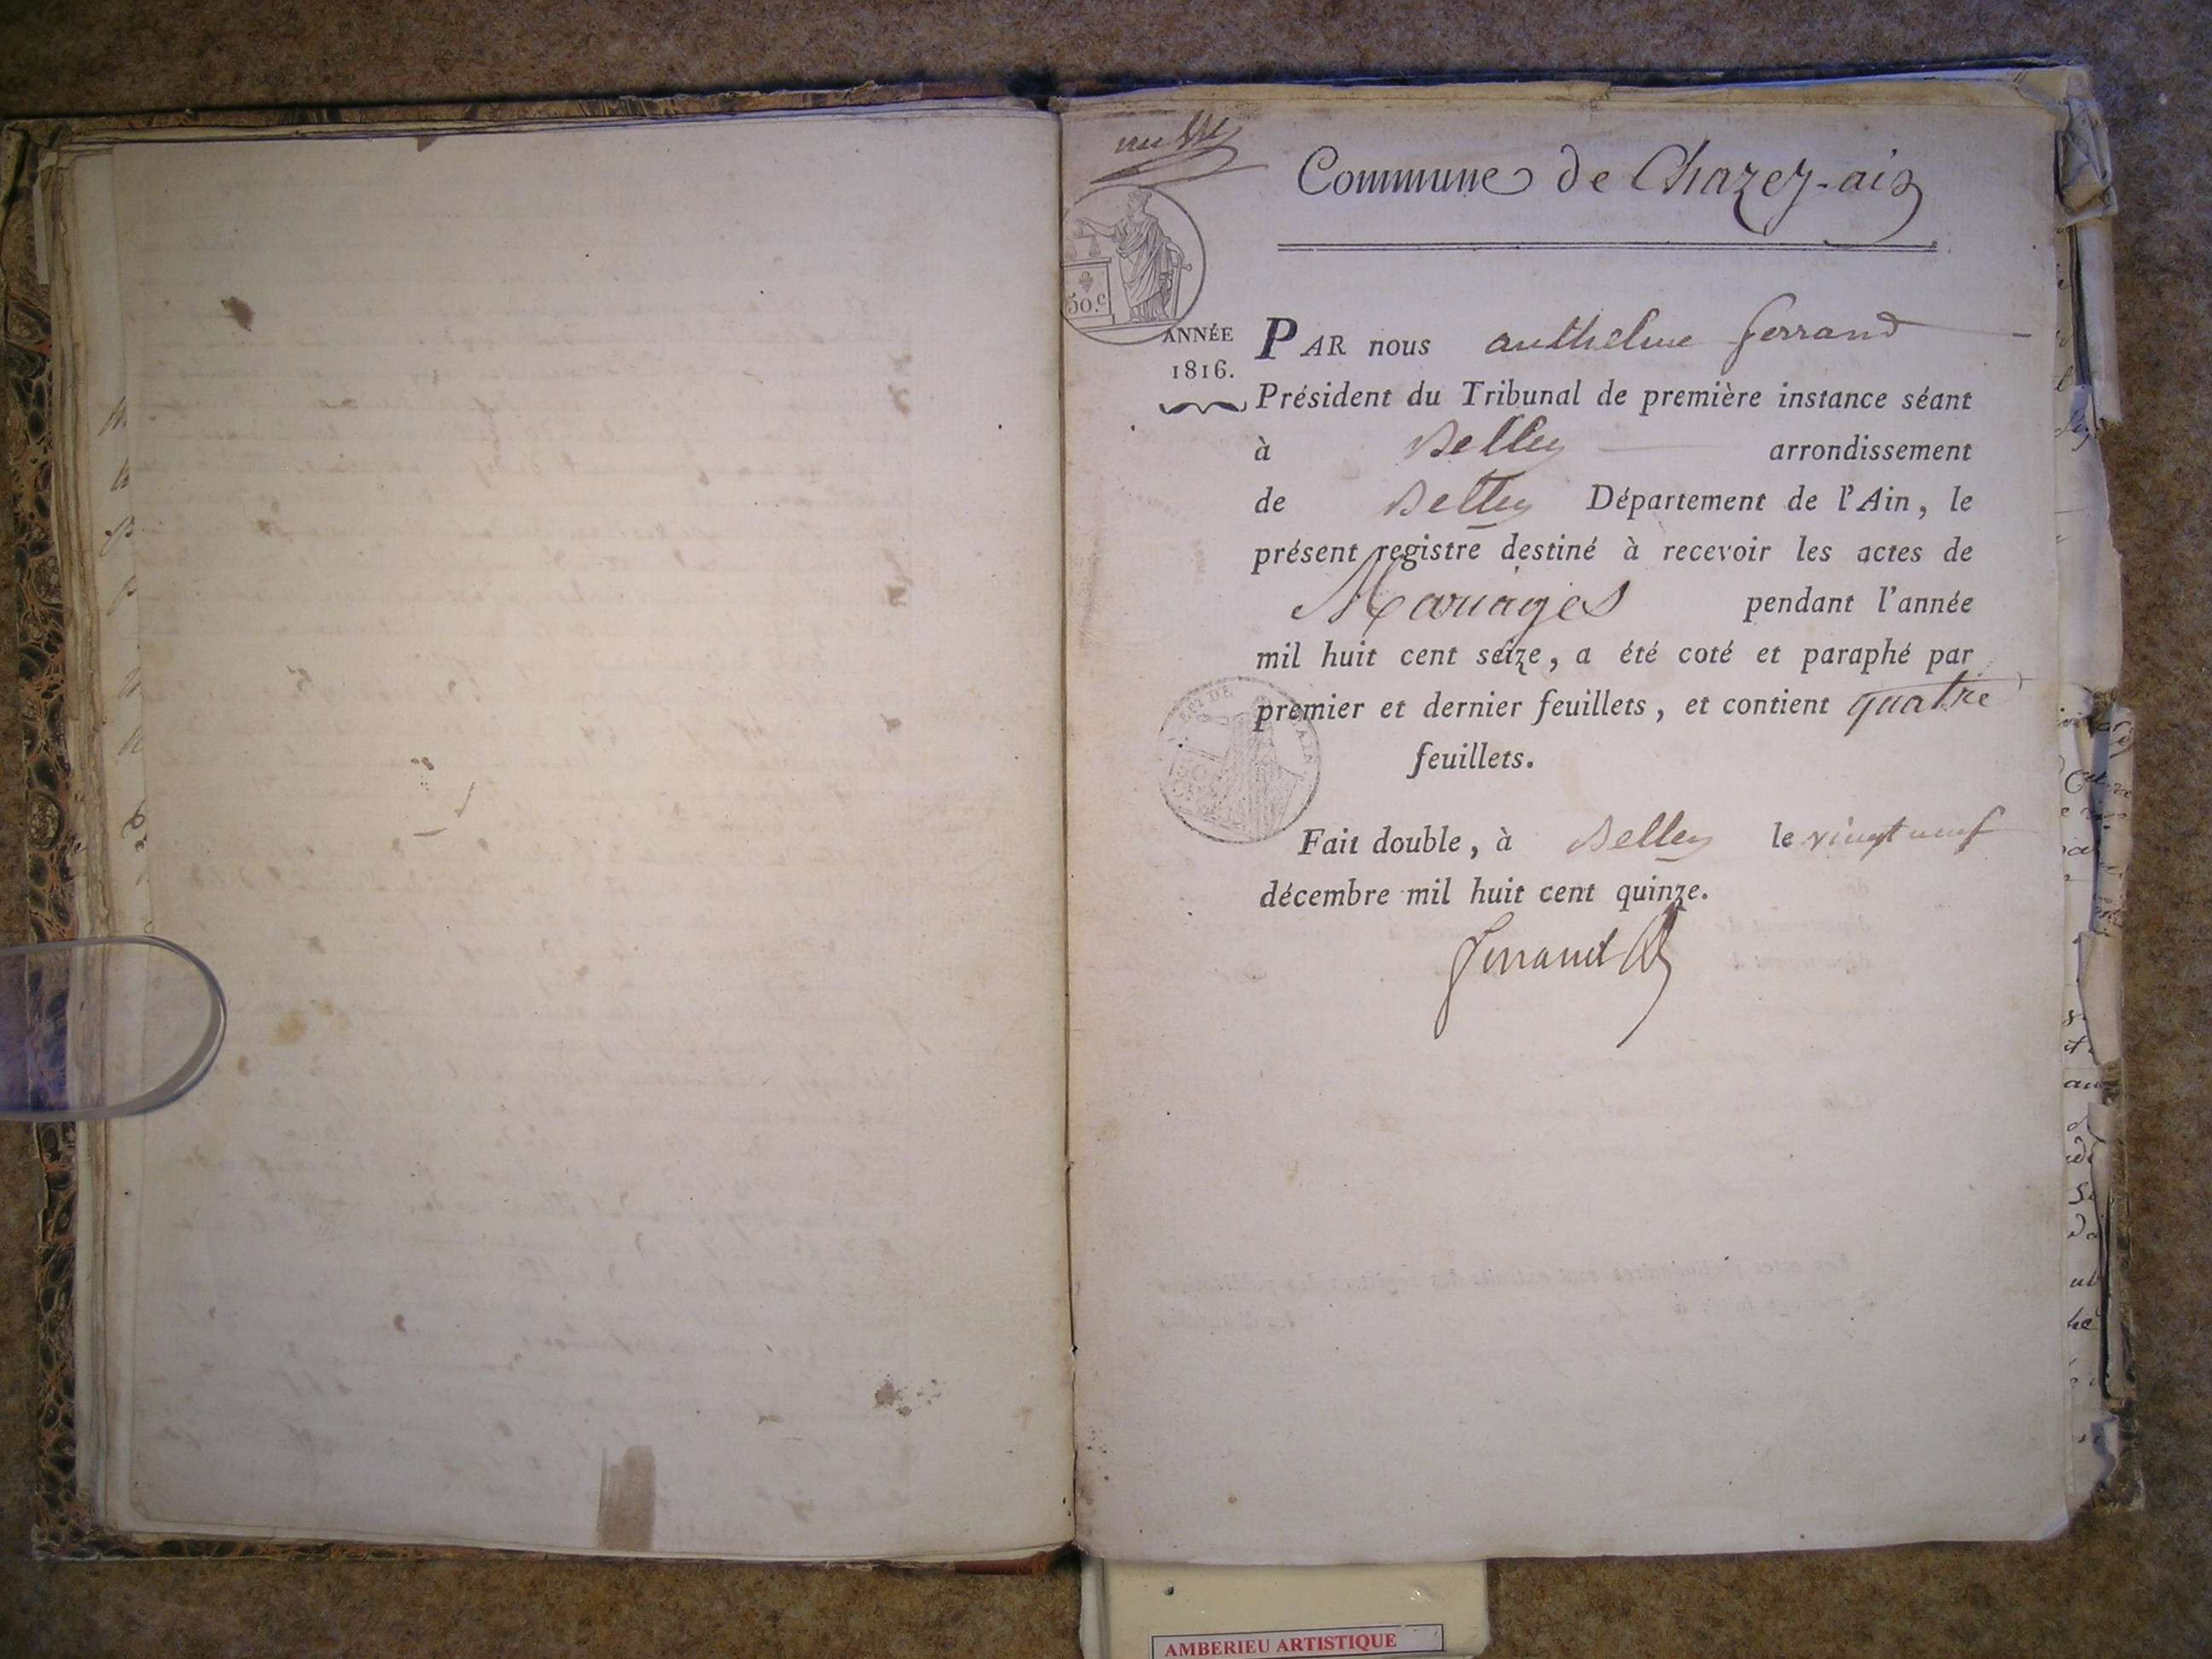 Commune de Chazey-ain
50.c
ANNÉE
1816.
PAR nous anthelme ferrand
Président du Tribunal de première instance séant
à Belley arrondissement
de Belley Département de l'Ain, le
présent registre destiné à recevoir les actes de
Mariages pendant l'année
mil huit cent seize, a été coté et paraphé par
premier et dernier feuillets, et contient quatre
feuillets.
Fait double, à Belley le vingt neuf
décembre mil huit cent quinze.
ferrand
AMBERIEU ARTISTIQUE